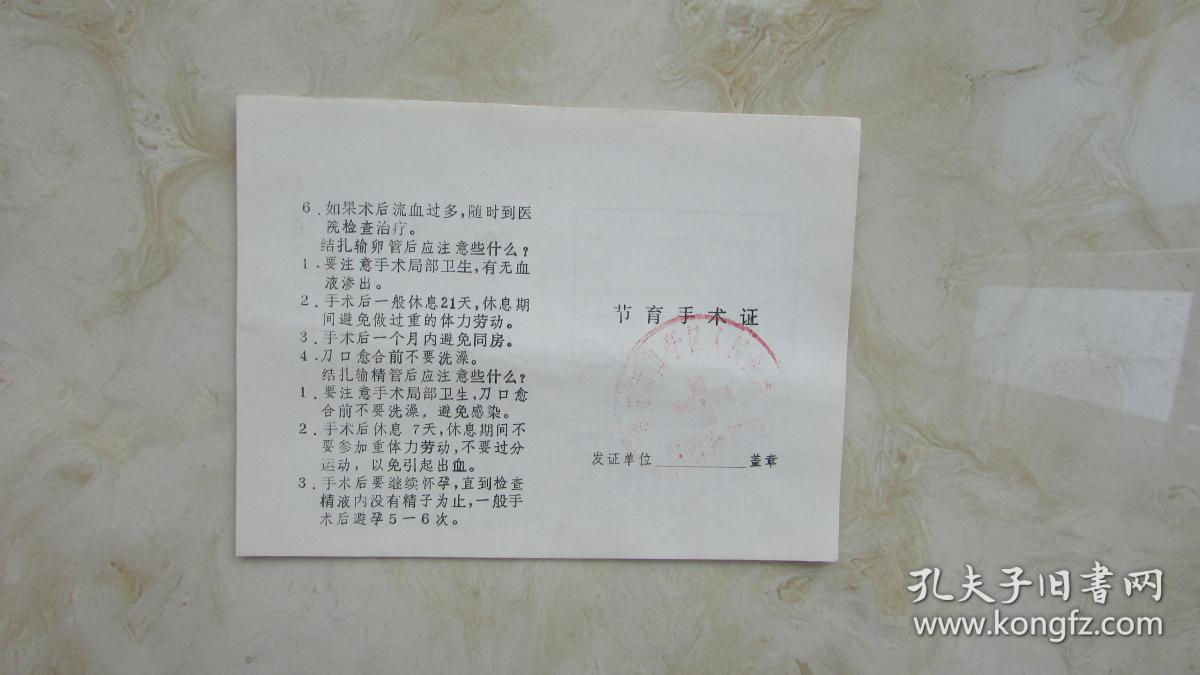 6．如果术后流血过多，随时到医
院检查治疗。
结扎输卵管后应注意些什么？
1．要注意手术局部卫生，有无血
液渗出。
2．手术后一般休息21天，休息期
间避免做过重的体力劳动。
3．手术后一个月内避免同房。
4．刀口愈合前不要洗澡。
结扎输精管后应注意些什么？
1．要注意手术局部卫生，刀口愈
合前不要洗澡，避免感染。
2．手术后休息 7天，休息期间不
要参加重体力劳动，不要过分
运动，以免引起出血。
3．手术后要继续怀孕，直到检查
精液内没有精子为止，一般手
术后避孕5—6次。
节育手术证
区人民
发证单位________盖章
孔夫子旧书网
www.kongfz.com